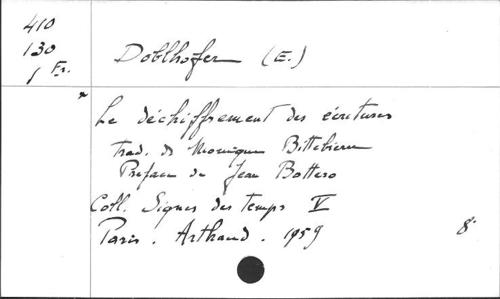 410
130
1 Fr.
Doblhofer (E.)
Le déchiffrement des écritures
trad. de Monique Bittebierre
Préface de Jean Bottero
Coll. Signes des temps V
Paris. Arthaud. 1959 8°